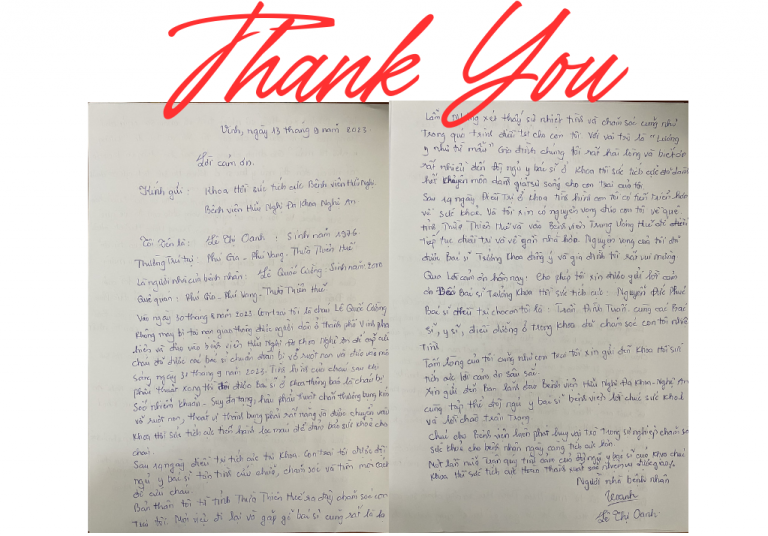 Thank You
Vinh, ngày 13 tháng 9 năm 2023
Lời cảm ơn.
Kính gửi: Khoa Hồi sức tích cực Bệnh viện Hữu Nghị.
Bệnh viện Hữu Nghị Đa Khoa Nghệ An
Tôi Tên là: Lê Thị Oanh: Sinh năm 1976
Thường Trú tại: Phú Gia - Phú Vang - Thừa Thiên Huế
Là người nhà của bệnh nhân: Lê Quốc Cường: Sinh năm 2010
Quê quán: Phú Gia - Phú Vang - Thừa Thiên Huế
Vào ngày 30 tháng 8 năm 2023 Con trai tôi là cháu Lê Quốc Cường
Không may bị tai nạn giao thông được người dân ở thành phố Vinh phát
hiện và đưa vào bệnh viện Hữu Nghị Đa Khoa Nghệ An để cấp cứu
cháu đã được các bác sĩ chuẩn đoán bị vỡ ruột non và đưa vào mổ
sáng ngày 31 tháng 8 năm 2023. Tình hình của cháu sau khi
phẫu thuật xong thì được bác sĩ ở khoa thông báo là cháu bị
Sốc nhiễm khuẩn - Suy đa tạng, hậu phẫu thuật chấn thương bụng kín
vỡ ruột non, thoát vị thành bụng phải rất nặng và được chuyển vào
Khoa Hồi sức tích cực tiến hành lọc máu để đảm bảo sức khoẻ cho
cháu.
Sau 14 ngày điều trị tích cực tại Khoa. Con trai tôi được đội
ngũ y bác sĩ tận tình cứu chữa, chăm sóc và tìm mọi cách
để cứu cháu.
Bản thân tôi từ tỉnh Thừa Thiên Huế ra đây chăm sóc con
Trai tôi. Mọi việc đi lại và gặp gỡ bác sĩ cũng rất là
thấy sự nhiệt tình và chăm sóc cũng như
Trong quá trình điều trị của con tôi Với vai trò là "Lương
y như từ mẫu" Gia đình chúng tôi rất hài lòng và biết ơn
rất nhiều đến đội ngũ y bác sĩ ở Khoa Hồi sức tích cực đã dành
hết chuyên môn dành giật sự sống cho con trai của tôi
Sau 14 ngày Điều Trị ở Khoa tình hình con tôi có tiến triển hơn
về sức khoẻ. Và tôi xin có nguyện vọng đưa con tôi về quê
tỉnh Thừa Thiên Huế và vào Bệnh viện Trung Ương Huế để
tiếp tục điều trị và về gần nhà hơn. Nguyện vọng của tôi đã
được Bác sĩ Trưởng Khoa đồng ý và gia đình tôi rất vui mừng
Qua lời cảm ơn hôm nay: Cho phép tôi xin được gửi lời cảm
ơn Bác sĩ Trưởng Khoa Hồi sức tích cực: Nguyễn Đức Phúc
Bác sĩ điều trị cho con tôi là: Trần Đình Tuấn. cùng các Bác
Sĩ, y sĩ, điều dưỡng ở trong khoa đã chăm sóc con tôi nhiệt
tình
Tấm lòng của tôi cũng như con trai tôi xin gửi đến Khoa Hồi Sức
tích cực lời cảm ơn sâu sắc.
Xin gửi đến Ban lãnh đạo Bệnh viện Hữu Nghị Đa Khoa - Nghệ An
cùng tập thể đội ngũ y bác sĩ bệnh viện lời chúc sức khoẻ
và lời chào trân trọng.
Chúc cho Bệnh viện luôn phát huy vai trò trong sự nghiệp chăm sóc
sức khoẻ cho bệnh nhân ngày càng tích cực hơn.
Một lần nữa cảm của đội ngũ y bác sĩ của Khoa
Khoa Hồi sức tích cực Hoàn Thành xuất sắc nhiệm vụ
Người nhà bệnh nhân
Oanh
Lê Thị Oanh.